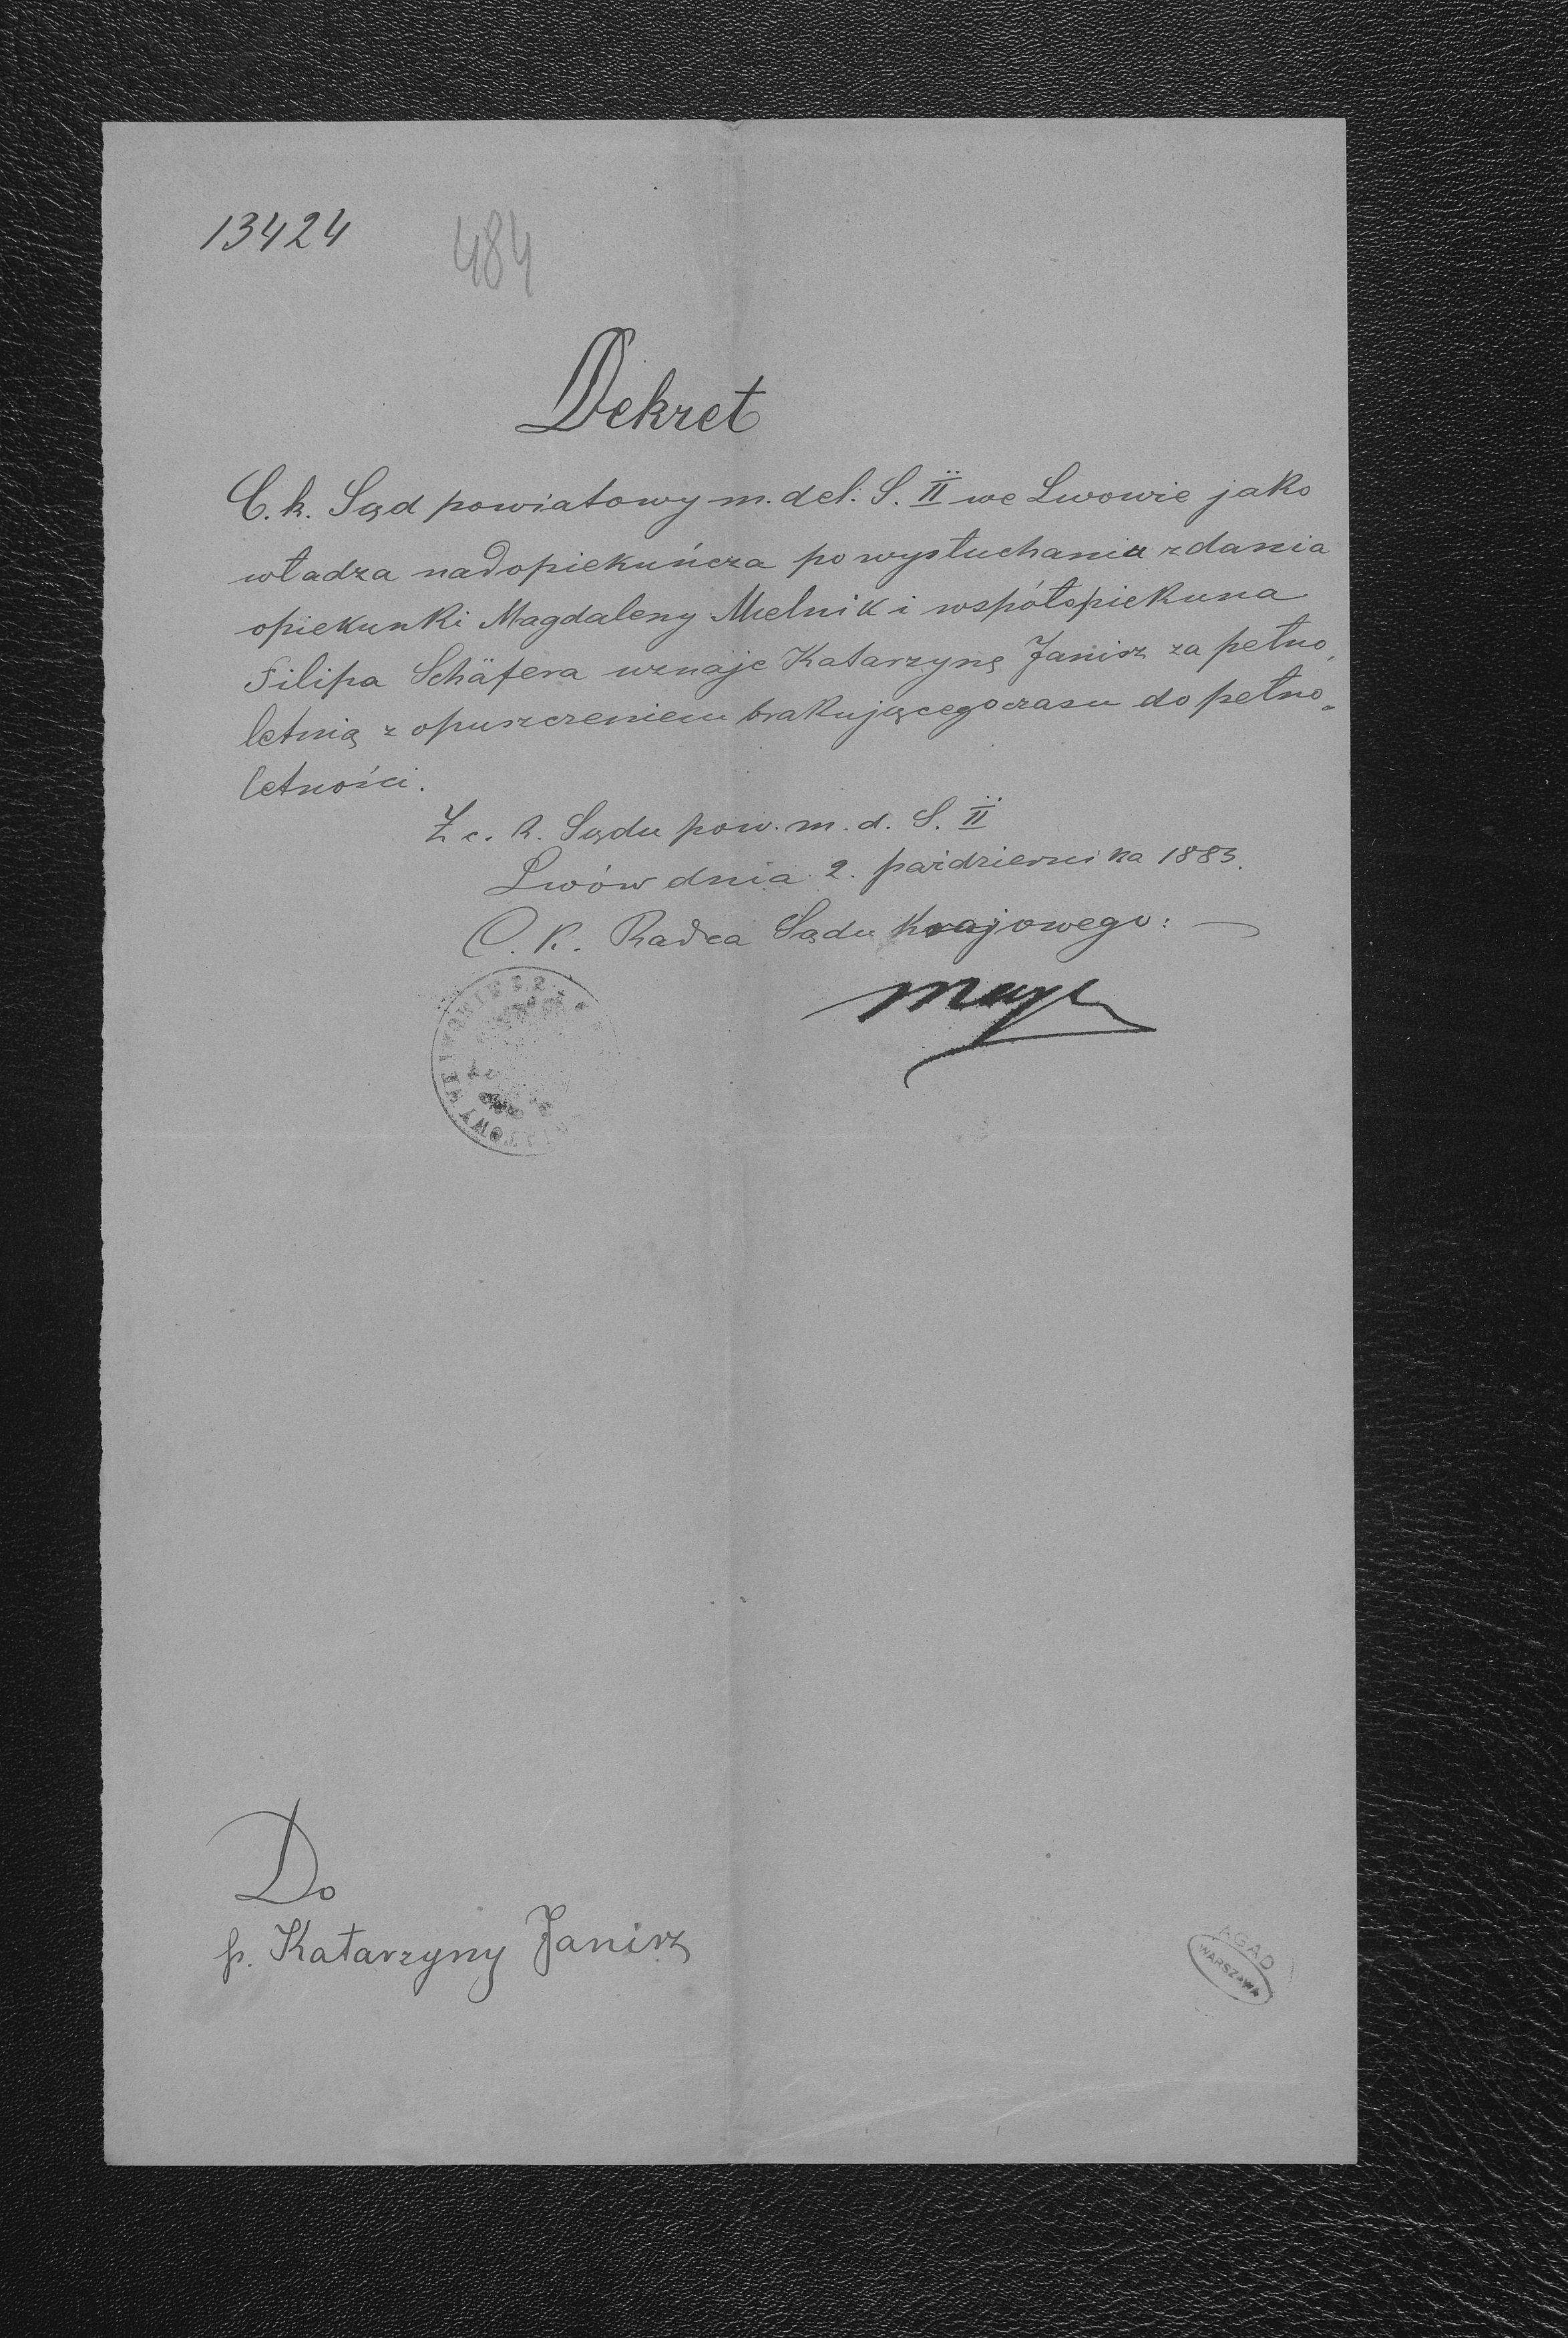 13424
484
Dekret
C. k. Sąd powiatowy m. del. S. II we Lwowie jako
władza nadopiekuńcza po wysłuchaniu zdania
opiekunki Magdaleny Melnik i współopiekuna
Filipa Schäfera uznaje Katarzynę Janisz za pełno
letnią z opuszczeniem brakującego czasu do pełno
letności.
Z c. k. Sądu pow. m. d. S. II
Lwów dnia 2. października 1883.
C. K. Radca Sądu Krajowego:
Do
p. Katarzyny Janisz
AGAD
WARSZAWA